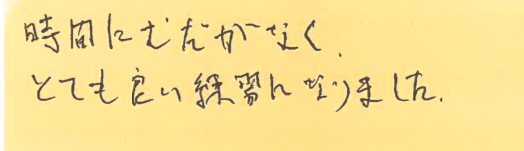 時間にむだがなく、
とても良い練習になりました。